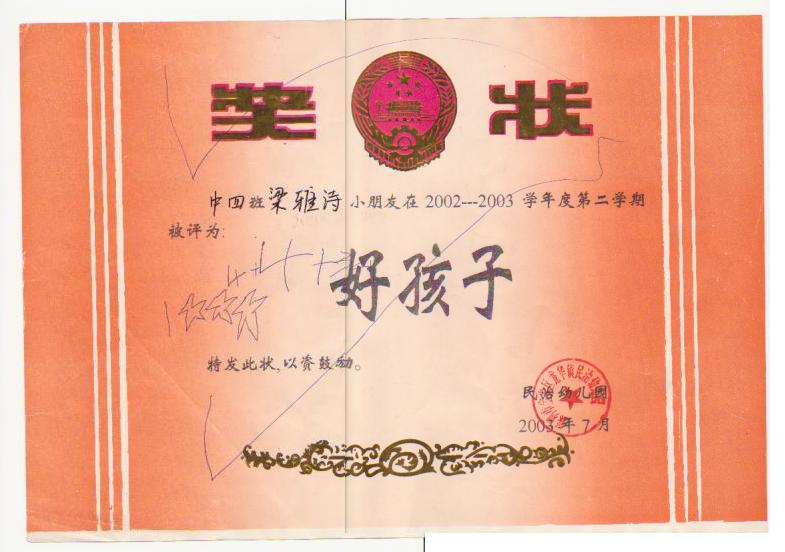 奖状
中四班梁雅诗小朋友在2002---2003学年度第二学期
被评为:
好孩子
特发此状,以资鼓励。
民治幼儿园
2003年7月